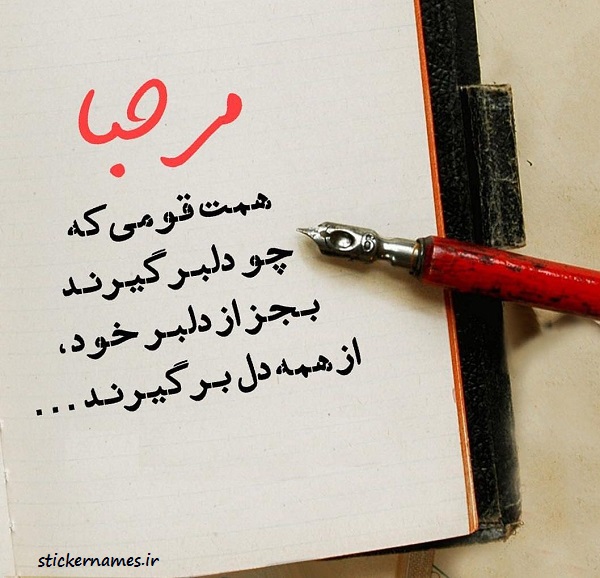 مرحبا
همت قومی که
چو دلبر گیرند
بجز از دلبر خود،
از همه دل بر گیرند...
stickernames.ir